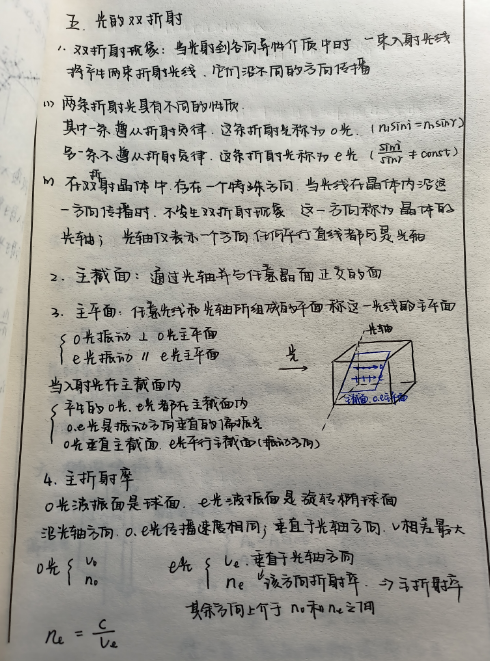 五. 光的双折射
1. 双折射现象: 当光射到各向异性介质中时 一束入射光线
将产生两束折射光线. 它们沿不同的方向传播
(1) 两条折射光具有不同的性质.
其中一条遵从折射定律. 这条折射光称为 o光. (n₁sini = n₂sinr)
另一条不遵从折射定律. 这条折射光称为 e光 (sini/sinr ≠ const)
在双折射晶体中. 存在一个特殊方向. 当光线在晶体内沿这
一方向传播时. 不发生双折射现象 这一方向称为晶体的
光轴; 光轴仅表示一个方向 任何平行直线都可是光轴
2. 主截面: 通过光轴并与任意晶面正交的面
3. 主平面: 任意光线和光轴所组成的平面 称这一光线的主平面
o光振动 ⊥ o光主平面
e光振动 ∥ e光主平面
光轴
光
主截面. o.e主平面
当入射光在主截面内
产生的o光. e光都在主截面内
o.e光是振动方向垂直的偏振光
o光垂直主截面. e光平行主截面(振动方向)
4. 主折射率
o光波振面是球面. e光波振面是旋转椭球面
沿光轴方向. o.e光传播速度相同; 垂直于光轴方向. v相差最大
o光 { v₀ e光 { vₑ. 垂直于光轴方向
n₀ nₑ 该方向折射率. => 主折射率
其余方向上介于 n₀ 和 nₑ 之间
nₑ = c/vₑ